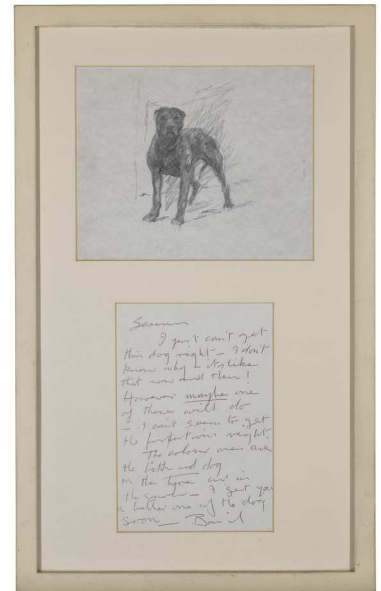 I just can't get
this dog right – I don't
know why – it's like
that now and then!
However maybe one
of these will do
– I can't seem to get
the right.
The colour ones are
the and dog
on the and in
the – I get you
a better one of the dog
soon